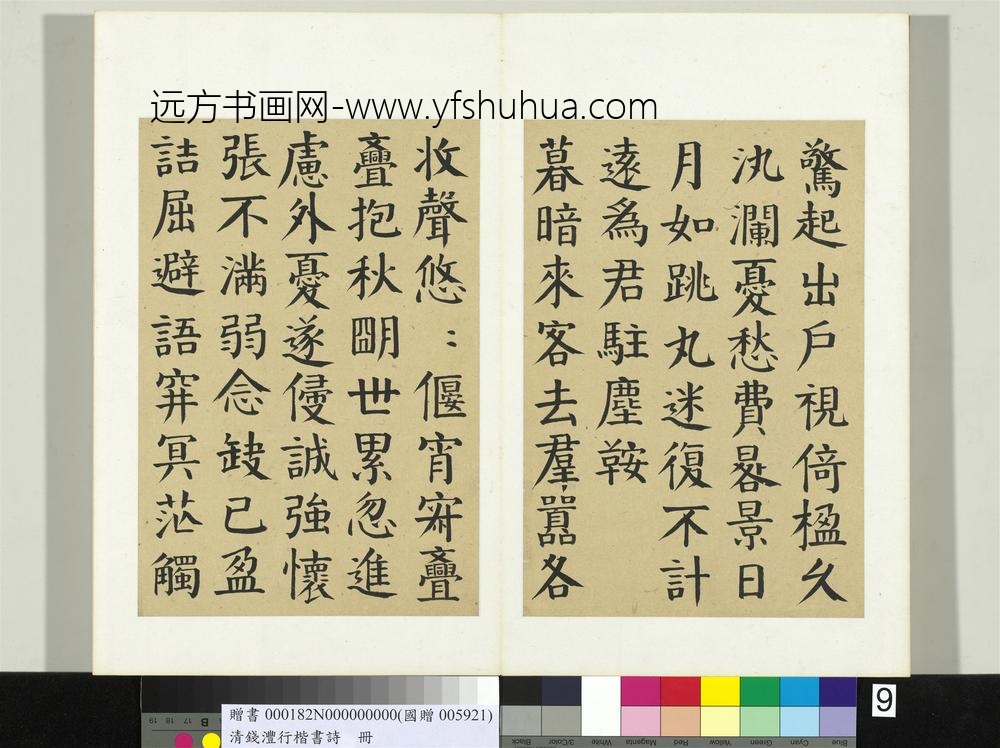 远方书画网-www.yfshuhua.com
驚起出戶視倚楹久
汍瀾憂愁費晷景日
月如跳丸迷復不計
遠為君駐塵鞍
暮暗來客去羣囂各
收聲悠〻偃宵寂亹
亹抱秋明世累忽進
慮外憂遂侵誠強懷
張不滿弱念缺已盈
詰屈避語穽冥茫觸
9
贈書 000182N000000000(國贈 005921)
清錢灃行楷書詩　冊
19 18 17 B
Black 3/Color White Magenta Red Yellow Green Cyan Blue